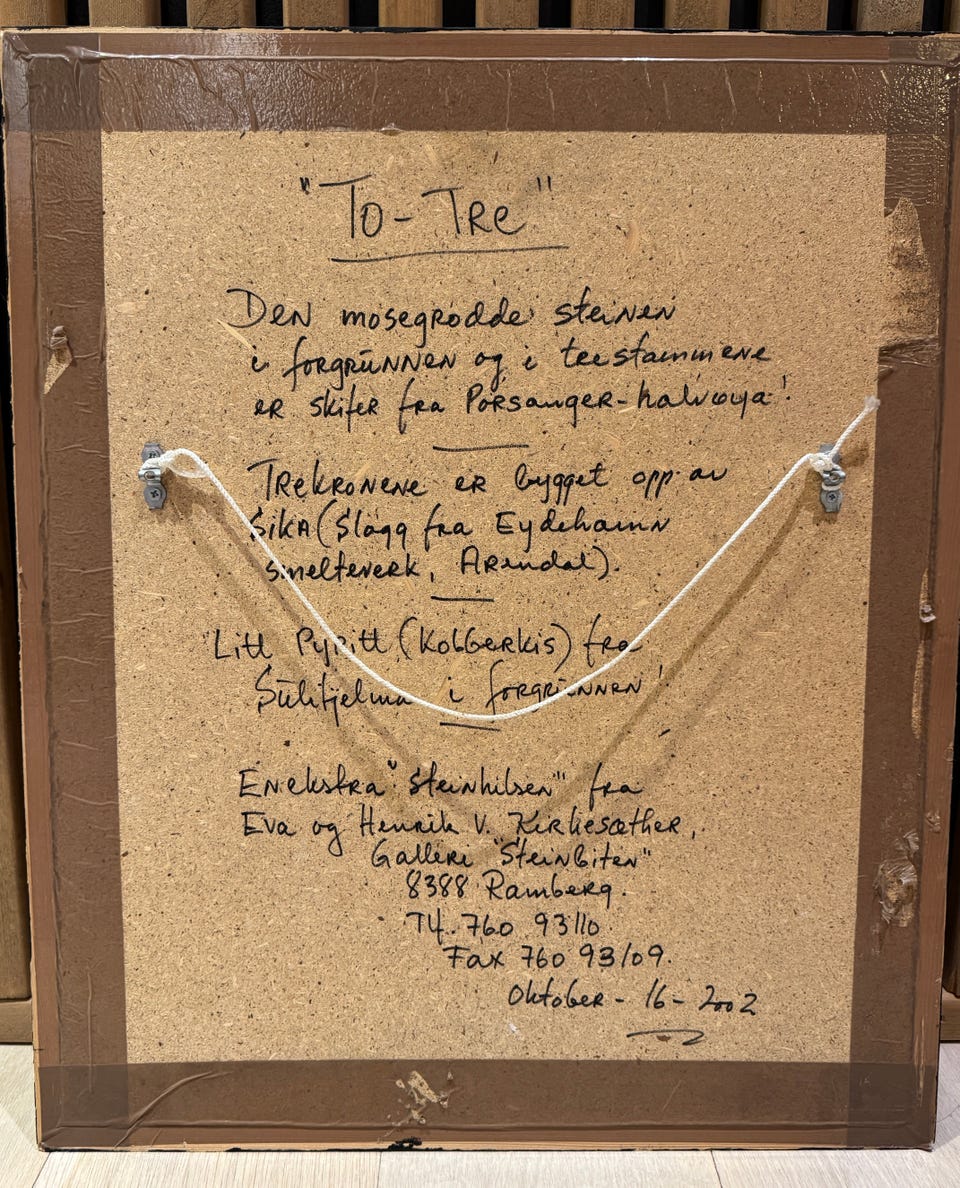 "To-Tre"
Den mosegrodde steinen
i forgrunnen og i trestammene
er skifer fra Porsanger-halvøya!
Trekronene er bygget opp av
Sika (Slagg fra Eydehamn
smelteverk, Arendal).
Litt Pyritt (Kobberkis) fra
Sulitjelma i forgrunnen!
En ekstra "steinhilsen" fra
Eva og Henrik V. Kirkesæther,
Galleri "Steinbiten"
8388 Ramberg.
Tlf. 760 93110
Fax 760 93109.
Oktober - 16 - 2002